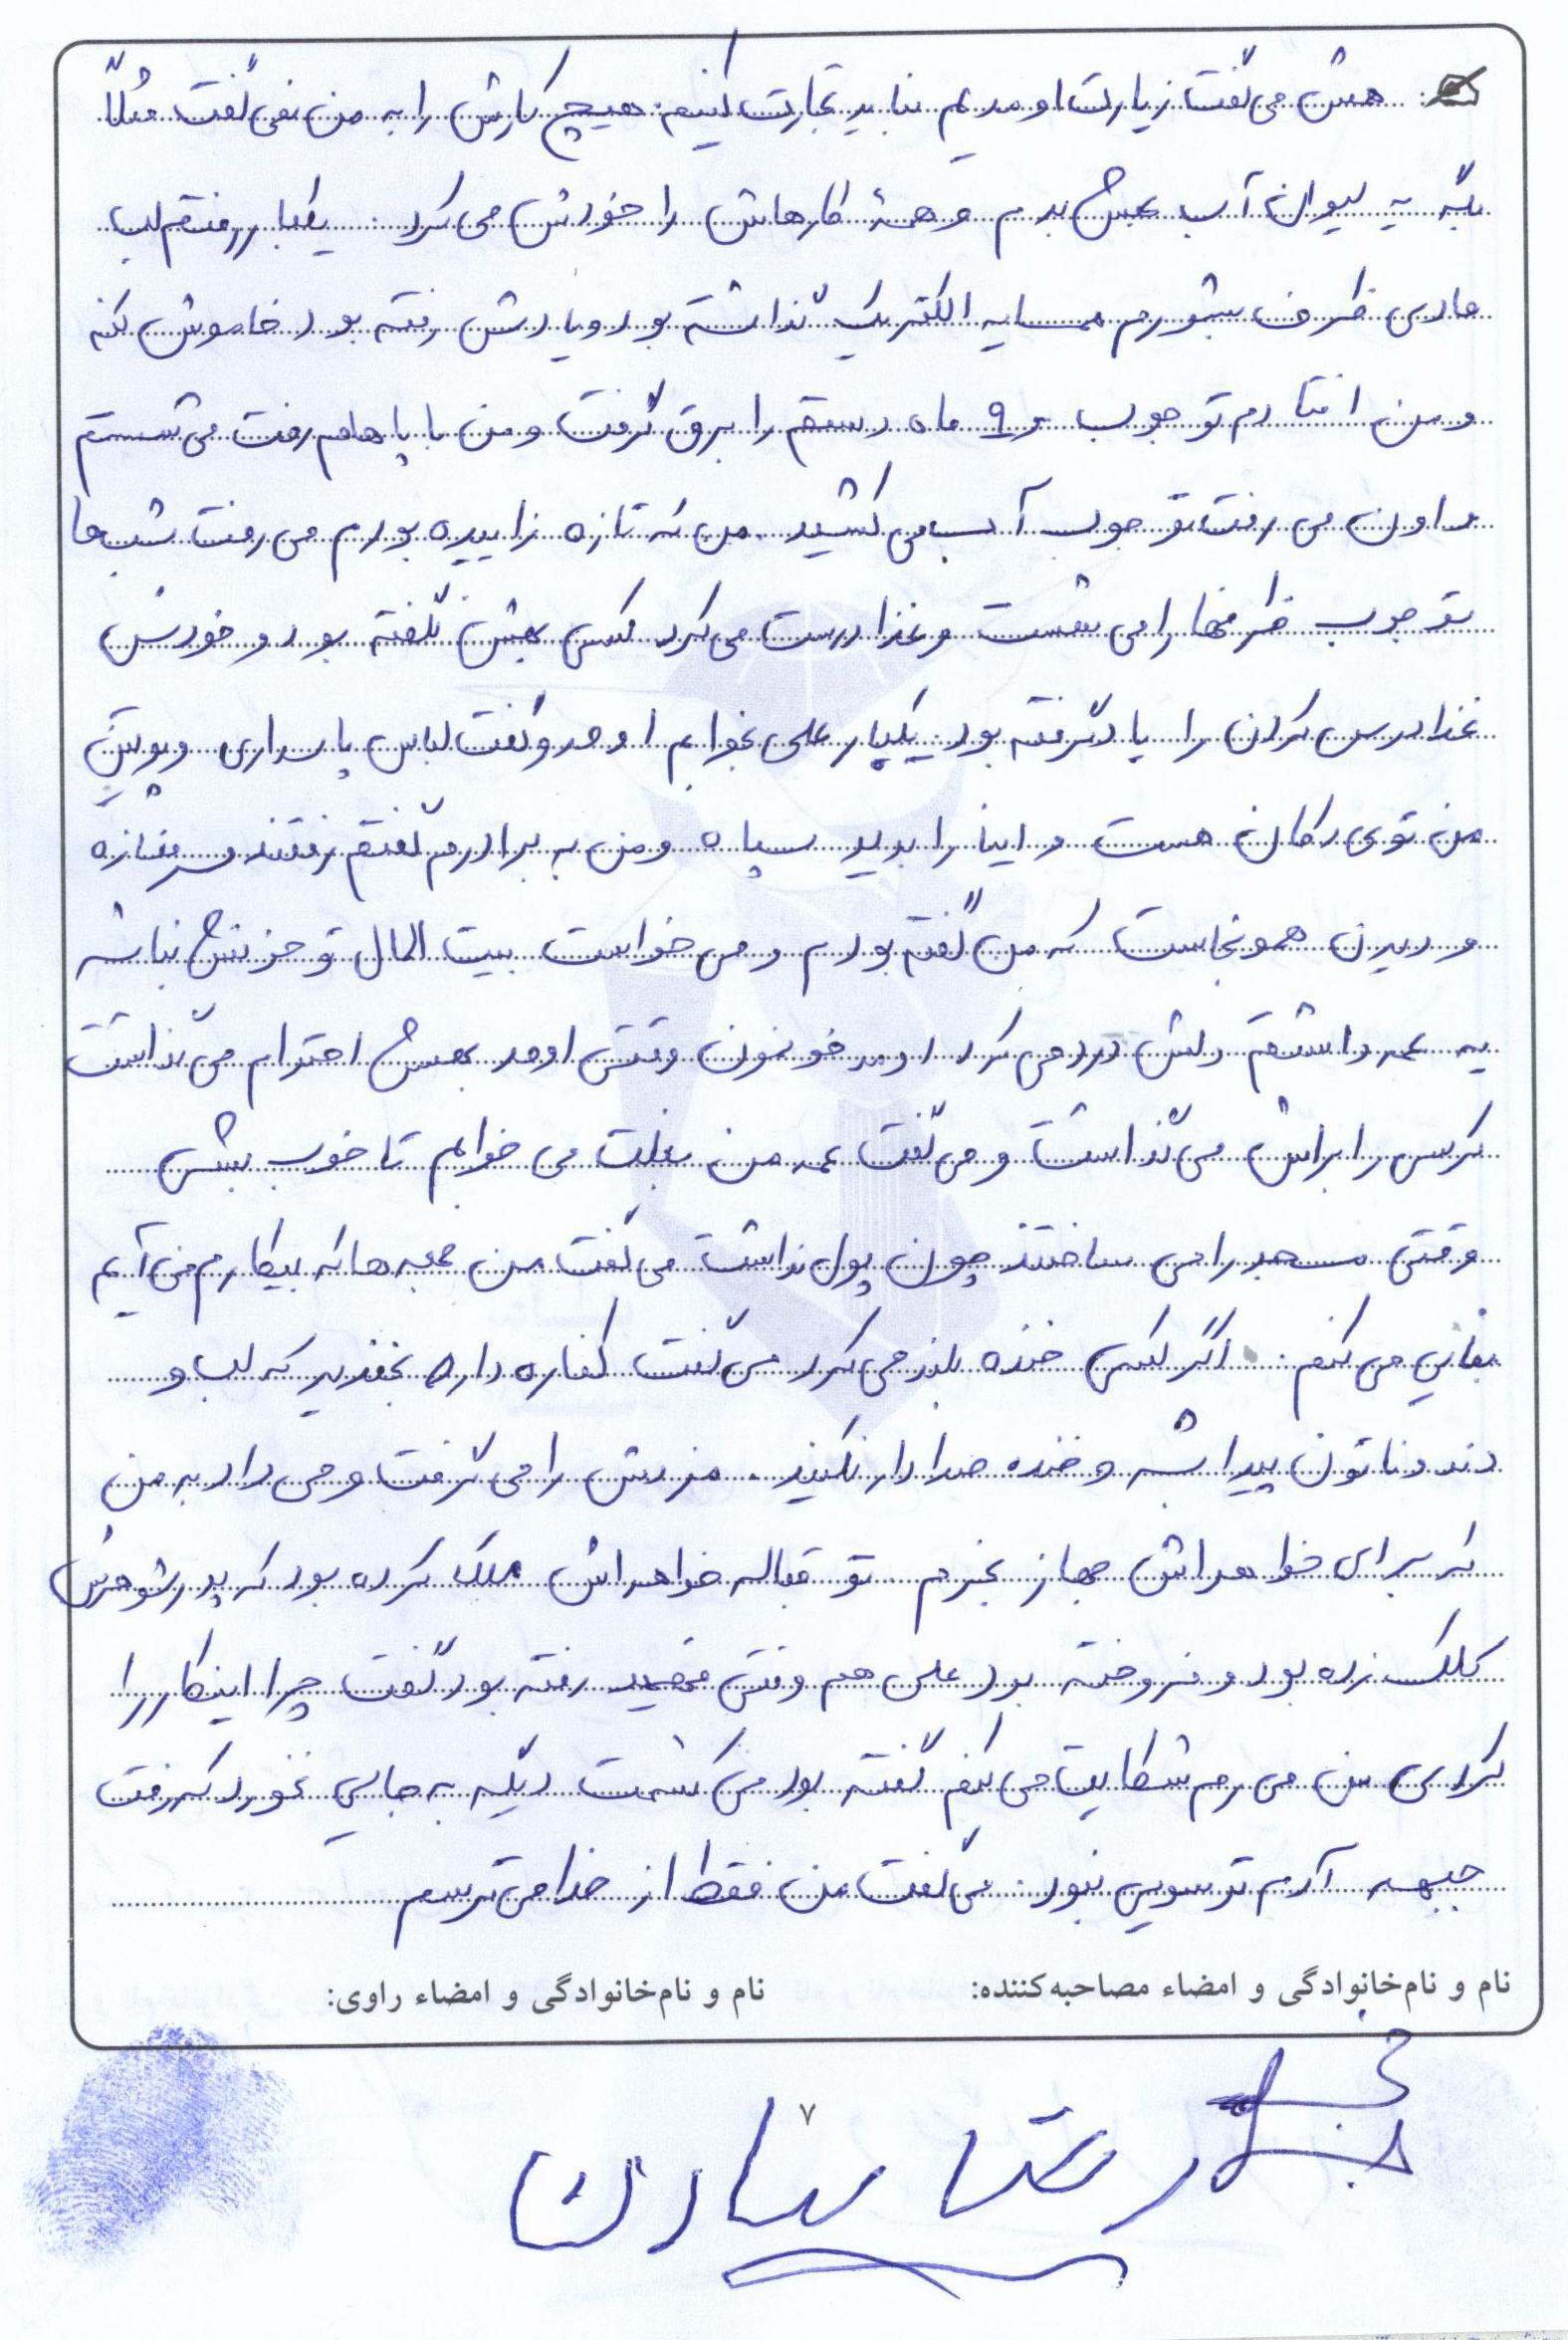 همش می گفت زیارت اومدیم نباید تجارت کنیم. هیچ کارش را به من نمی گفت مثلاً
بگه یه لیوان آب بهش بدم و همهٔ کارهاش را خودش می کرد. یکبار رفتم لب
مادی ظرف بشورم همسایه الکتریک گذاشته بود و یادش رفته بود خاموش کنه
و من افتادم تو جوب و 9 ماه دستم را برق گرفت و من با پاهام رخت می شستم
و اون می رفت تو جوب آب می کشید. من که تازه زاییده بودم می رفت شب ها
تو جوب ظرفها را می شست و غذا درست می کرد کسی بهش نگفته بود و خودش
غذا درس کردن را یاد گرفته بود. یکبار علی بخوابم اومد و گفت لباس پاسداری و پوتین
من توی دکان هست و اینا را بدید سپاه و من به برادرم گفتم رفتند سر مغازه
و دیدن همونجاست که من گفته بودم و می خواست بیت المال تو خونش نباشه
یه عمه داشتم دلش درد می کرد اومد خونمون وقتی اومد بهش احترام می گذاشت
کرسی را براش می گذاشت و می گفت عمه من بغلت می خوابم تا خوب بشی
وقتی مسجد را می ساختند چون پول نداشت می گفت من جمعه ها که بیکارم می آیم
بنایی می کنم. اگر کسی خنده بلند می کرد می گفت کفاره داره بخندید که لب و
دندوناتون پیدا بشه و خنده صدادار نکنید. مزدش را می گرفت و می داد به من
که برای خواهراش جهاز بخرم تو قباله خواهراش ملک کرده بود که پدر شوهرش
کلک زده بود و فروخته بود علی هم وقتی فهمید رفته بود گفت چرا اینکار را
کردی من می رم شکایت می کنم گفته بود می کشمت دیگه به جایی نخورد که رفت
جبهه آدم ترسویی نبود. می گفت من فقط از خدا می ترسم
نام و نام‌خانوادگی و امضاء مصاحبه‌کننده: نام و نام‌خانوادگی و امضاء راوی:
۷